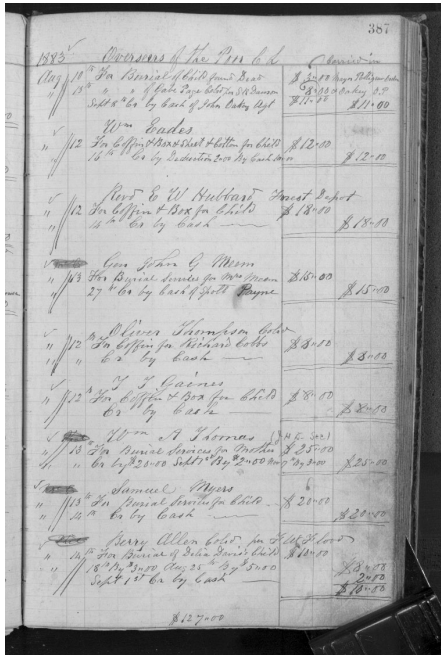 387
1883 Overseers of the Poor C L
Aug 10th For Burial of Child found Dead $3"00
15th " " of Gabe Page Cold for J H Dawson $8"00 Oakey O.P.
Sept 8th Cr by Cash of John Oakey Agt $11"00 $11"00
Wm Eades
" 12 For Coffin & Box & Sheet & Cotton for Child $12"00
14th Cr by Deduction 2"00 By Cash $12"00
Revd E W Hubbard Forest Depot
" 12 For Coffin & Box for Child $18"00
" 14th Cr by Cash $18"00
Gen John G Meem
" 13 For Burial Services for Mrs Meem $15"00
" 27th Cr by Cash of Scott Payne $15"00
Oliver Thompson Cold
" 12th For Coffin for Richard Cobbs $8"00
" " Cr by Cash $8"00
Gaines
" 12th For Coffin & Box for Child $8"00
Cr by Cash $8"00
Wm A Thomas
" 13th For Burial Services for Mother $25"00
" " Cr by $20"00 Sept 1st By $2"00 By 3"00 $25"00
Samuel Myers
" 13th For Burial Services for Child $20"00
" 14th Cr by Cash $20"00
Berry Allen Cold per Flood
" 14th For Burial of Delia Davis Child $10"00
18th By $3"00 Aug 25th By $5"00 $8"00
2"00
Sept 1st Cr by Cash $10"00
$127"00